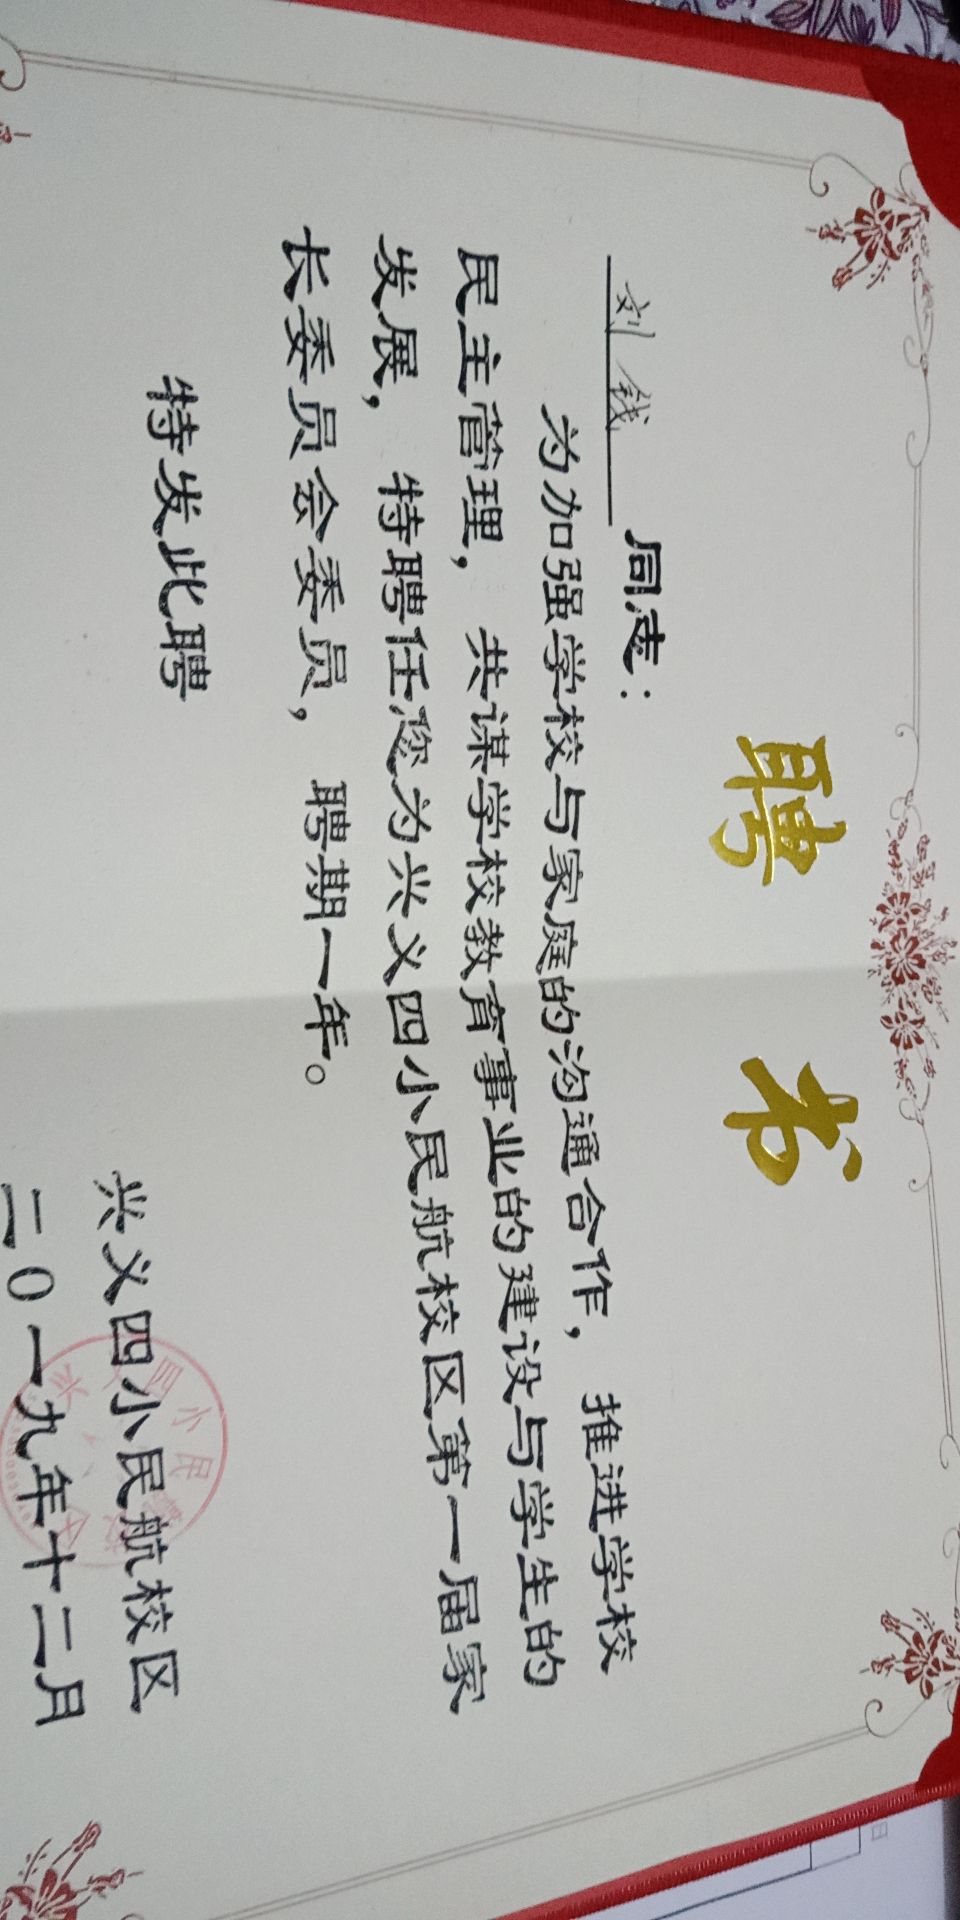 聘书
刘钱 同志：
为加强学校与家庭的沟通合作，推进学校
民主管理，共谋学校教育事业的建设与学生的
发展，特聘任您为兴义四小民航校区第一届家
长委员会委员，聘期一年。
特发此聘
兴义四小民航校区
二0一九年十二月